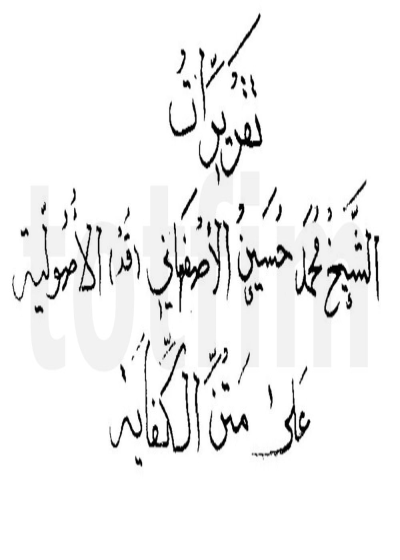 تَقْرِيرَاتُ
الشَّيْخُ مُحَمَّد حُسَيْنٍ الأَصْفَهَانِي (قده) الأُصُولِيَّة
عَلَىٰ مَتْنِ الْكِفَايَة
totfim